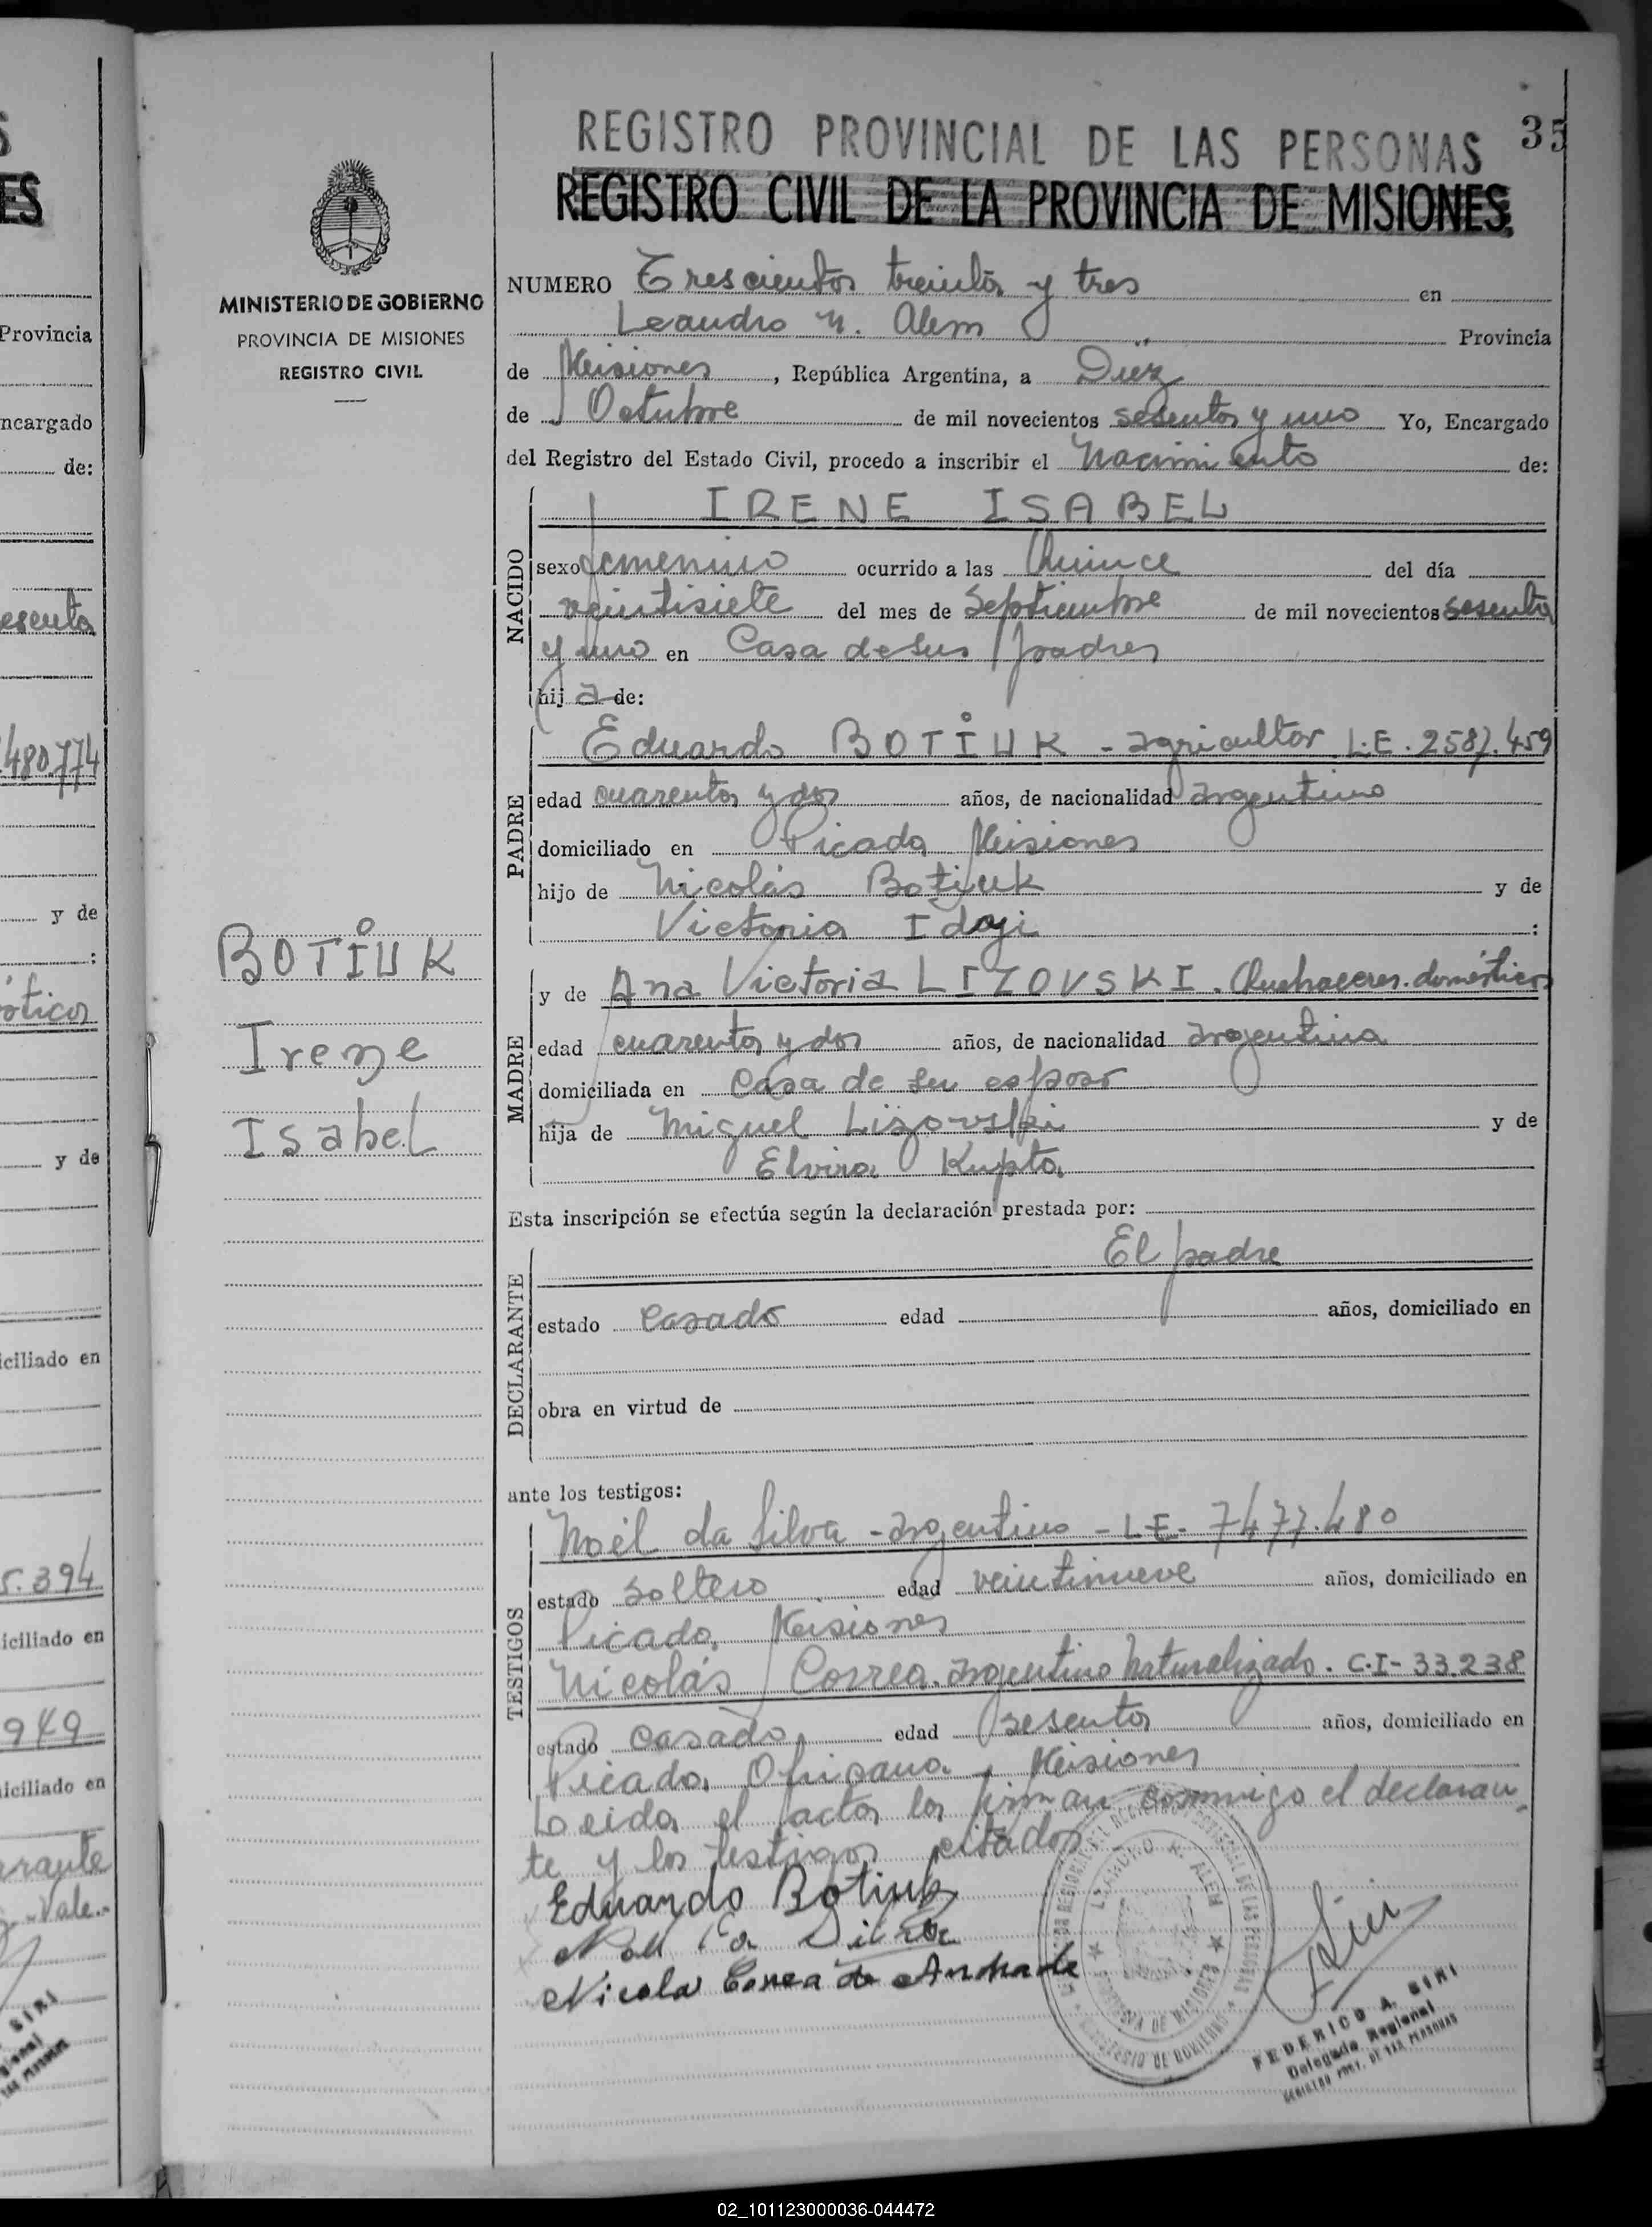 REGISTRO PROVINCIAL DE LAS PERSONAS 35
REGISTRO CIVIL DE LA PROVINCIA DE MISIONES
MINISTERIO DE GOBIERNO
PROVINCIA DE MISIONES
REGISTRO CIVIL
NUMERO Trescientos treinta y tres en
Leandro N. Alem Provincia
de Misiones, República Argentina, a Diez
de Octubre de mil novecientos sesenta y uno Yo, Encargado
del Registro del Estado Civil, procedo a inscribir el Nacimiento de:
NACIDO
IRENE ISABEL
sexo femenino ocurrido a las Quince del día
veintisiete del mes de Septiembre de mil novecientos sesenta
y uno en Casa de sus padres
hija de:
PADRE
Eduardo BOTIUK - agricultor L.E. 2587.459
edad cuarenta y dos años, de nacionalidad argentino
domiciliado en Picada Misiones
hijo de Nicolás Botiuk y de
Victoria Idzi:
BOTIUK
Irene
Isabel
MADRE
y de Ana Victoria LIZOVSKI. Quehaceres domésticos
edad cuarenta y dos años, de nacionalidad argentina
domiciliada en Casa de su esposo
hija de Miguel Lizovski y de
Elvira Kupta
Esta inscripción se efectúa según la declaración prestada por:
DECLARANTE
El padre
estado Casado edad años, domiciliado en
obra en virtud de
ante los testigos:
TESTIGOS
Noél da Silva - argentino - L.E. 7477.480
estado soltero edad veintinueve años, domiciliado en
Picada Misiones
Nicolás Correa. argentino Naturalizado. C.I- 33.238
estado Casado, edad sesenta años, domiciliado en
Picada Misiones
Leida el acta la firman conmigo el declaran
te y los testigos citados
Eduardo Botiuk
Noel da Silva
Nicola Correa de Andrade
LEANDRO N. ALEM
PROVINCIA DE MISIONES
MINISTERIO DE GOBIERNO
FEDERICO A. SIRI
Delegado Regional
REGISTRO PROV. DE LAS PERSONAS
ES
Provincia
ncargado
de:
esenta
480.774
y de
:
y de
iciliado en
5.394
iciliado en
949
iciliado en
Vale.-
SIRI
02_101123000036-044472